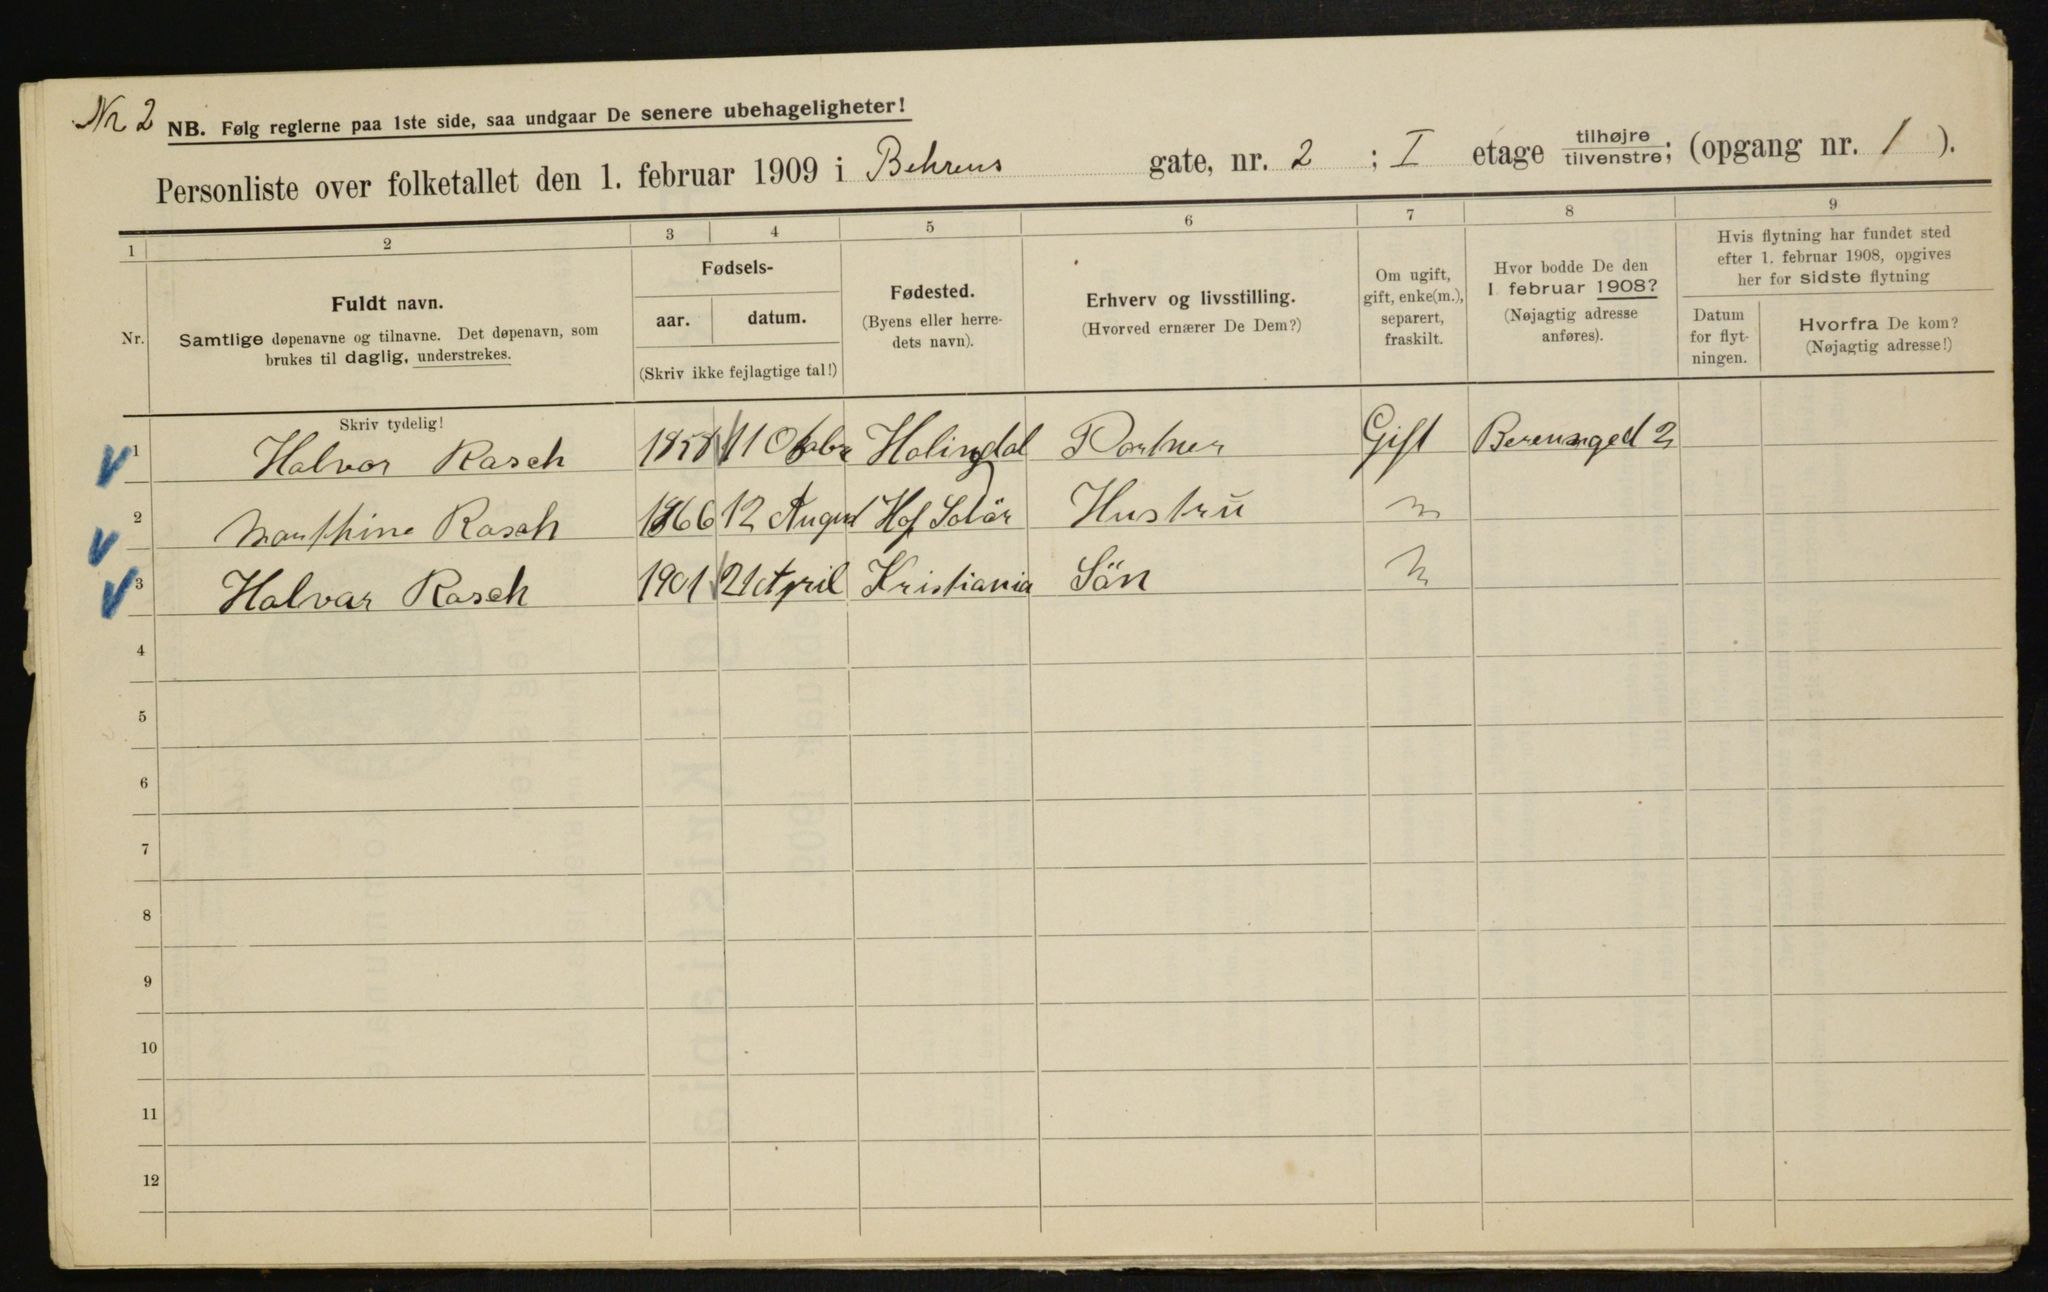 Nr 2
NB. Følg reglerne paa 1ste side, saa undgaar De senere ubehageligheter!
Personliste over folketallet den 1. februar 1909 i Behrens gate, nr. 2 ; I etage tilhøjre tilvenstre; (opgang nr. 1 ).
1 2 3 4 5 6 7 8 9
Nr.
Fuldt navn.
Samtlige døpenavne og tilnavne. Det døpenavn, som
brukes til daglig, understrekes.
Skriv tydelig!
Fødsels-
aar. datum.
(Skriv ikke fejlagtige tal!)
Fødested.
(Byens eller herre-
dets navn).
Erhverv og livsstilling.
(Hvorved ernærer De Dem?)
Om ugift,
gift, enke(m.),
separert,
fraskilt.
Hvor bodde De den
1 februar 1908?
(Nøjagtig adresse
anføres).
Hvis flytning har fundet sted
efter 1. februar 1908, opgives
her for sidste flytning
Datum
for flyt-
ningen.
Hvorfra De kom?
(Nøjagtig adresse!)
1 Halvor Rasch 1858 11 Holingdal Portner Gift 2
2 Rasch 1866 12 August Hof Solör Hustru
3 Halvar Rasch 1901 21 April Kristiania Sön
4
5
6
7
8
9
10
11
12